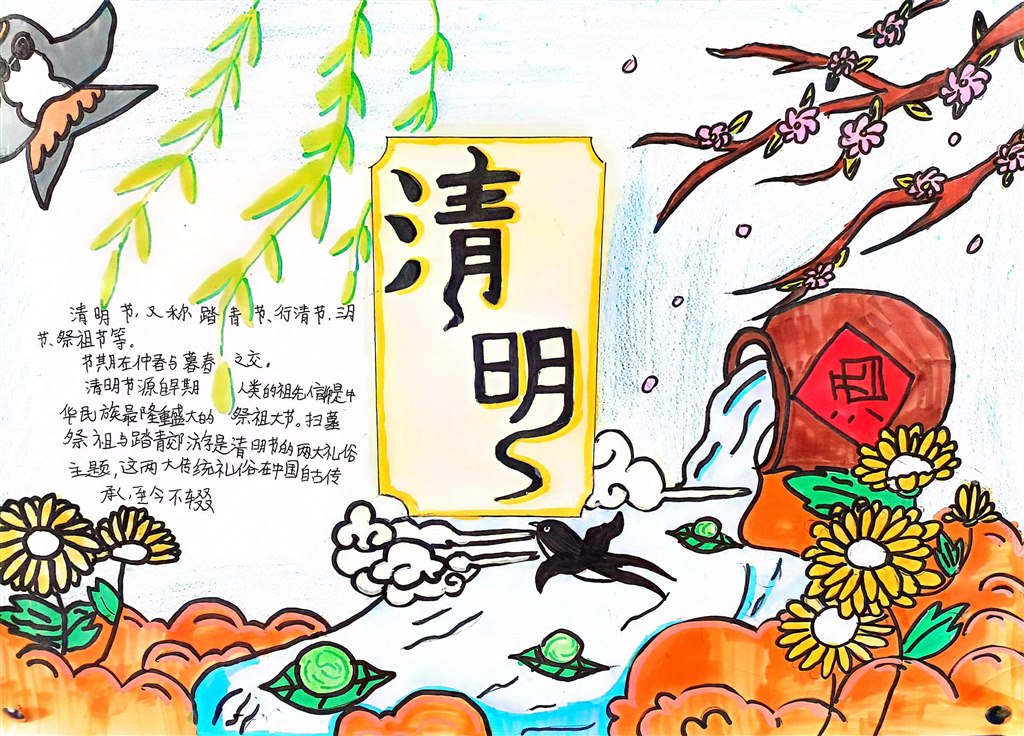 清明
清明节,又称踏青节、行清节、三月
节、祭祖节等。
节期在仲春与暮春之交。
清明节源自早期人类的祖先信仰是中
华民族最隆重盛大的祭祖大节。扫墓
祭祖与踏青郊游是清明节的两大礼俗
主题,这两大传统礼俗在中国自古传
承,至今不辍
酒